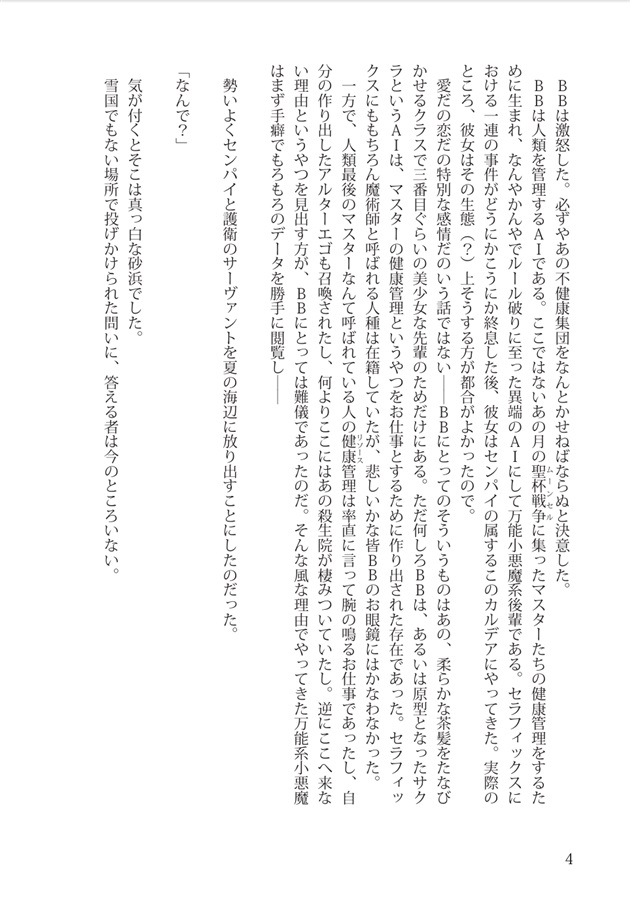 ＢＢは激怒した。必ずやあの不健康集団をなんとかせねばならぬと決意した。
　ＢＢは人類を管理するＡＩである。ここではないあの月の聖杯戦争に集ったマスターたちの健康管理をするた
ムーンセル
めに生まれ、なんやかんやでルール破りに至った異端のＡＩにして万能小悪魔系後輩である。セラフィックスに
おける一連の事件がどうにかこうにか終息した後、彼女はセンパイの属するこのカルデアにやってきた。実際の
ところ、彼女はその生態（？）上そうする方が都合がよかったので。
　愛だの恋だの特別な感情だのいう話ではない――ＢＢにとってのそういうものはあの、柔らかな茶髪をたなび
かせるクラスで三番目ぐらいの美少女な先輩のためだけにある。ただ何しろＢＢは、あるいは原型となったサク
ラというＡＩは、マスターの健康管理というやつをお仕事とするために作り出された存在であった。セラフィッ
クスにももちろん魔術師と呼ばれる人種は在籍していたが、悲しいかな皆ＢＢのお眼鏡にはかなわなかった。
　一方で、人類最後のマスターなんて呼ばれている人の健康管理は率直に言って腕の鳴るお仕事であったし、自
リソース
分の作り出したアルターエゴも召喚されたし、何よりここにはあの殺生院が棲みついていたし。逆にここへ来な
い理由というやつを見出す方が、ＢＢにとっては難儀であったのだ。そんな風な理由でやってきた万能系小悪魔
はまず手癖でもろもろのデータを勝手に閲覧し――
　勢いよくセンパイと護衛のサーヴァントを夏の海辺に放り出すことにしたのだった。
「なんで？」
　気が付くとそこは真っ白な砂浜でした。
　雪国でもない場所で投げかけられた問いに、答える者は今のところいない。
4